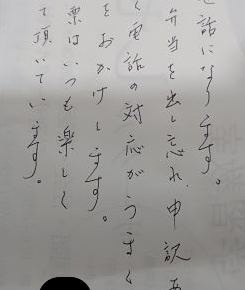 話になります。
弁当を出し忘れ、申訳あ
く電話の対応がうまく
をおかけします。
票はいつも楽しく
て頂いています。